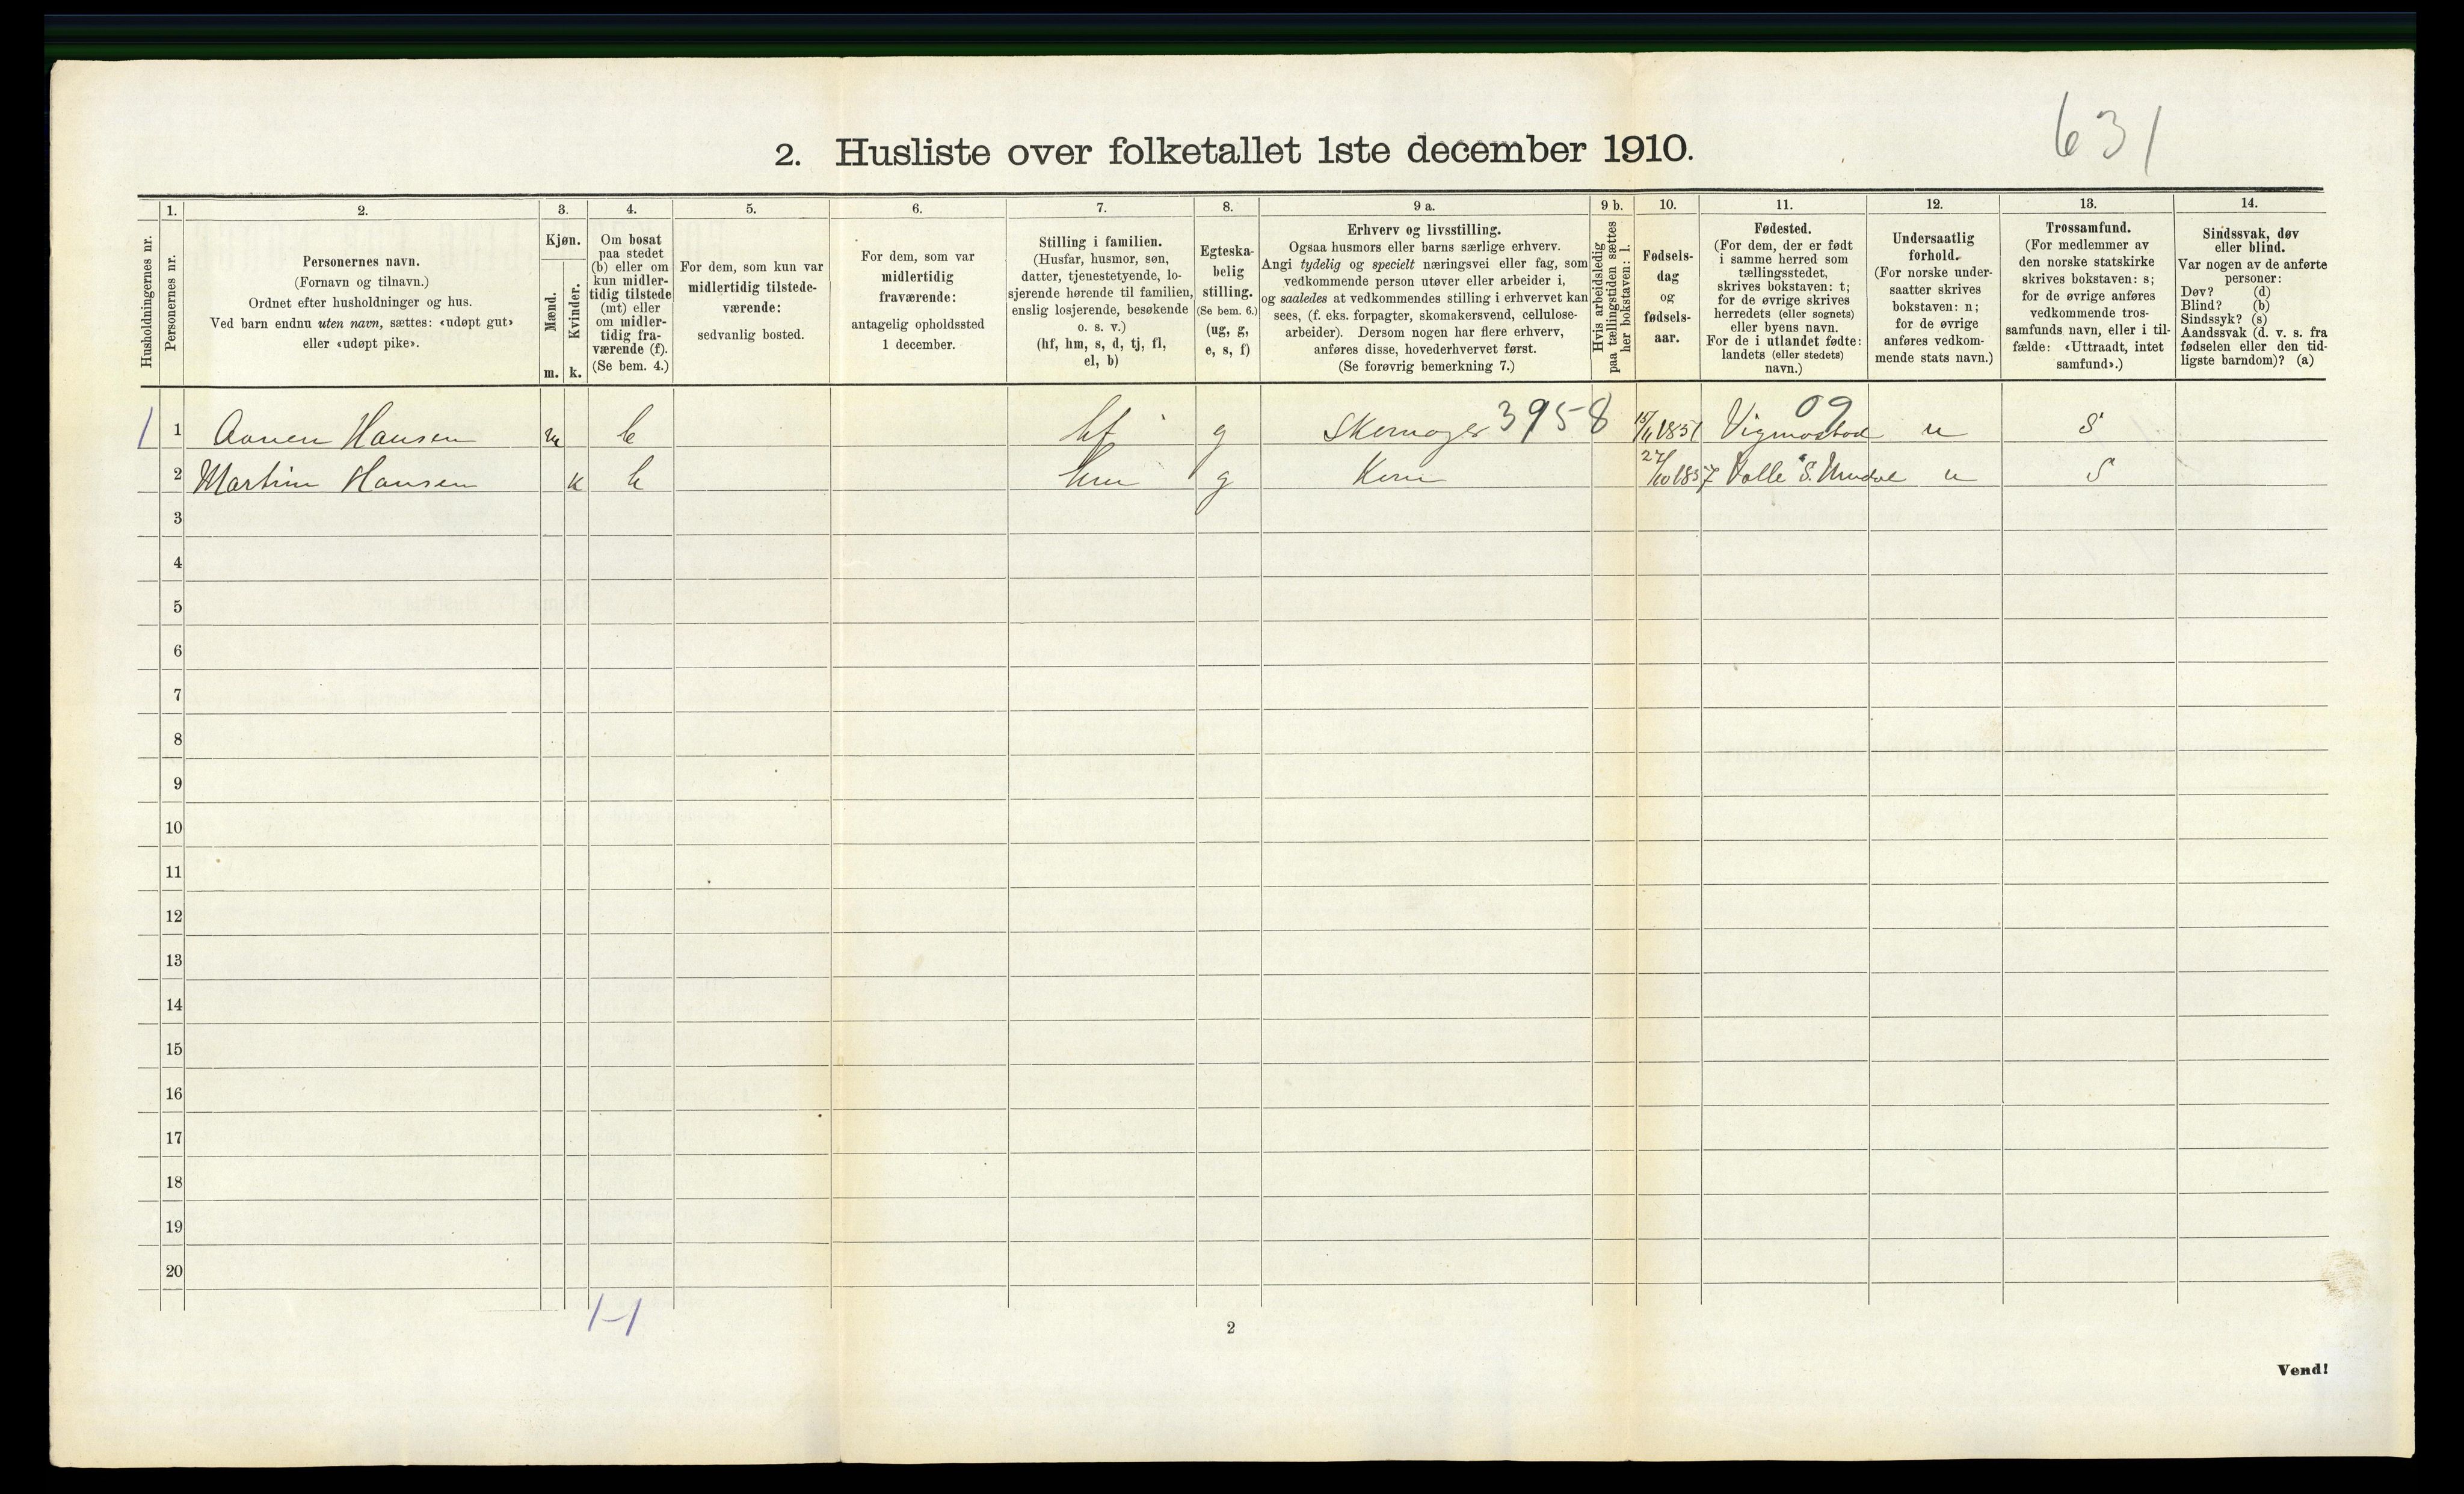 631
2. Husliste over folketallet 1ste december 1910.
Husholdningernes nr.
1.
Personernes nr.
2.
Personernes navn.
(Fornavn og tilnavn.)
Ordnet efter husholdninger og hus.
Ved barn endnu uten navn, sættes: «udøpt gut»
eller «udøpt pike».
3.
Kjøn.
Mænd.
Kvinder.
m. k.
4.
Om bosat
paa stedet
(b) eller om
kun midler-
tidig tilstede
(mt) eller
om midler-
tidig fra-
værende (f).
(Se bem. 4.)
5.
For dem, som kun var
midlertidig tilstede-
værende:
sedvanlig bosted.
6.
For dem, som var
midlertidig
fraværende:
antagelig opholdssted
1 december.
7.
Stilling i familien.
(Husfar, husmor, søn,
datter, tjenestetyende, lo-
sjerende hørende til familien,
enslig losjerende, besøkende
o. s. v.)
(hf, hm, s, d, tj, fl,
el, b)
8.
Egteska-
belig
stilling.
(Se bem. 6.)
(ug, g,
e, s, f)
9 a.
Erhverv og livsstilling.
Ogsaa husmors eller barns særlige erhverv.
Angi tydelig og specielt næringsvei eller fag, som
vedkommende person utøver eller arbeider i,
og saaledes at vedkommendes stilling i erhvervet kan
sees, (f. eks. forpagter, skomakersvend, cellulose-
arbeider). Dersom nogen har flere erhverv,
anføres disse, hovederhvervet først.
(Se forøvrig bemerkning 7.)
9 b.
Hvis arbeidsledig
paa tællingstiden sættes
her bokstaven: l.
10.
Fødsels-
dag
og
fødsels-
aar.
11.
Fødested.
(For dem, der er født
i samme herred som
tællingsstedet,
skrives bokstaven: t;
for de øvrige skrives
herredets (eller sognets)
eller byens navn.
For de i utlandet fødte:
landets (eller stedets)
navn.)
12.
Undersaatlig
forhold.
(For norske under-
saatter skrives
bokstaven: n;
for de øvrige
anføres vedkom-
mende stats navn.)
13.
Trossamfund.
(For medlemmer av
den norske statskirke
skrives bokstaven: s;
for de øvrige anføres
vedkommende tros-
samfunds navn, eller i til-
fælde: «Uttraadt, intet
samfund».)
14.
Sindssvak, døv
eller blind.
Var nogen av de anførte
personer:
Døv? (d)
Blind? (b)
Sindssyk? (s)
Aandssvak (d. v. s. fra
fødselen eller den tid-
ligste barndom)? (a)
1 1 Hansen m b hf g 3958 1851 Vigmostad 09 n S
2 Martine Hansen k b hm g Kone 27/10 1857 Valle S. Undal n S
3
4
5
6
7
8
9
10
11
12
13
14
15
16
17
18
19
20
1-1
2
Vend!